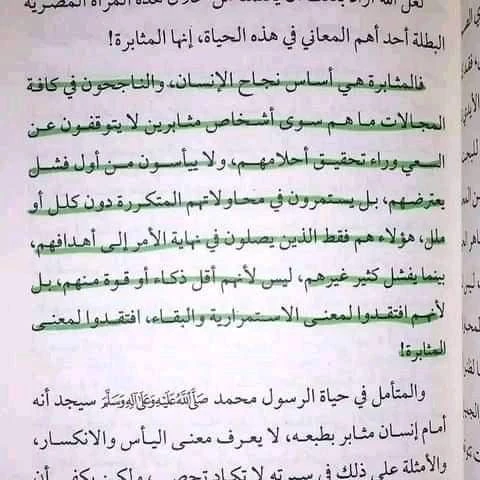 لعل الله أراد
هذه المرأة المصرية
البطلة أحد أهم المعاني في هذه الحياة، إنها المثابرة!
فالمثابرة هي أساس نجاح الإنسان، والناجحون في كافة
المجالات ما هم سوى أشخاص مثابرين لا يتوقفون عن
السعي وراء تحقيق أحلامهم، ولا ييأسون من أول فشل
يعترضهم، بل يستمرون في محاولاتهم المتكررة دون كلل أو
ملل، هؤلاء هم فقط الذين يصلون في نهاية الأمر إلى أهدافهم،
بينما يفشل كثير غيرهم، ليس لأنهم أقل ذكاء أو قوة منهم، بل
لأنهم افتقدوا لمعنى الاستمرارية والبقاء، افتقدوا لمعنى
المثابرة!
والمتأمل في حياة الرسول محمد صَلَّى اللَّهُ عَلَيْهِ وَعَلَى آلِهِ وَسَلَّمَ سيجد أنه
أمام إنسان مثابر بطبعه، لا يعرف معنى اليأس والانكسار،
والأمثلة على ذلك في سيرته لا تكاد تحصى، ولكن يكفي أن